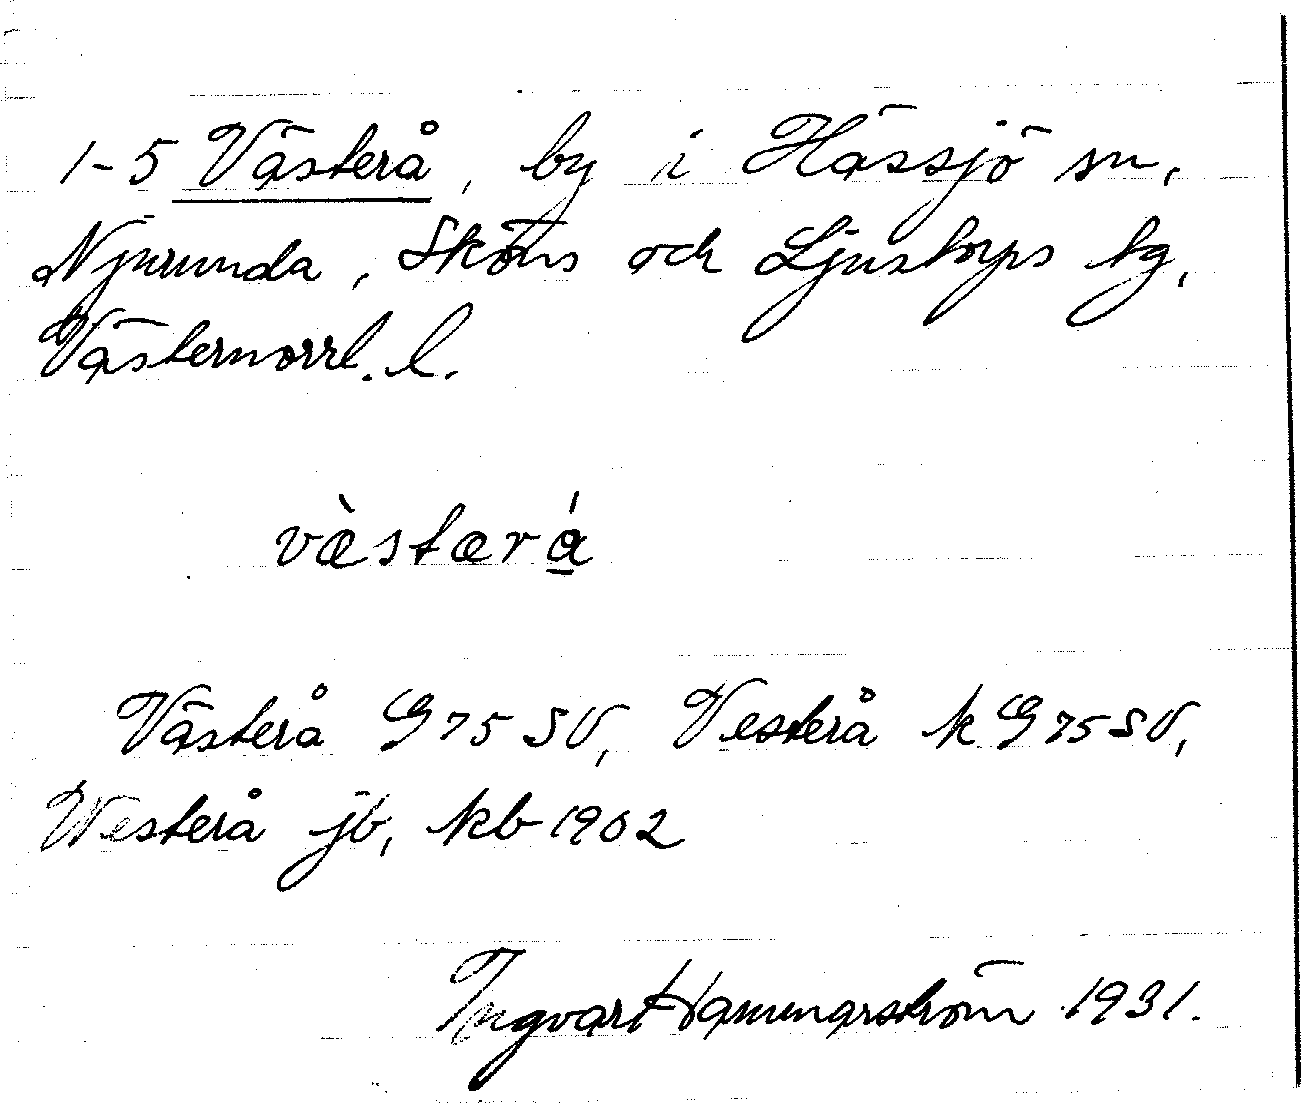 1-5 Västerå, by i Hässjö sn,
Njurunda, Sköns och Ljustorps tg,
Västernorrl. l.
væ̀stærá̱
Västerå G 75 SV, Vesterå k G 75 SV,
Westerå jb, kb 1902
Ingvar Hammarström 1931.